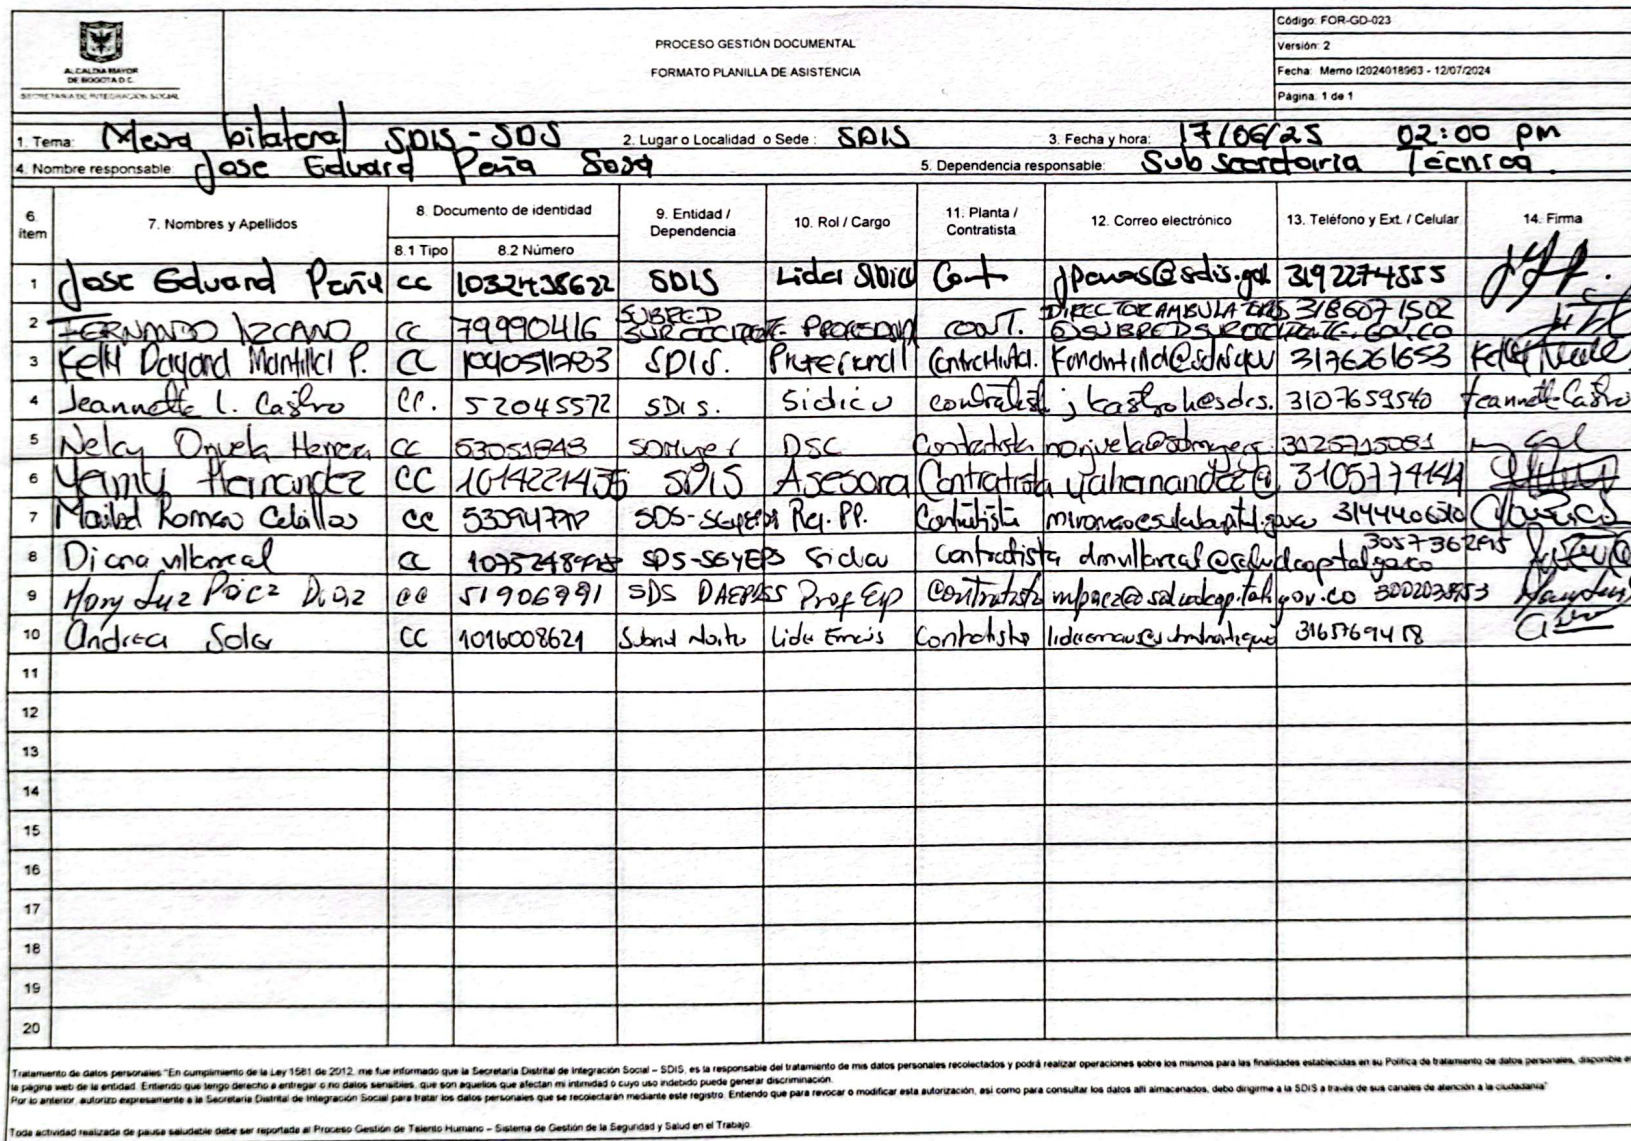 ALCALDÍA MAYOR
DE BOGOTÁ D.C.
SECRETARÍA DE INTEGRACIÓN SOCIAL
PROCESO GESTIÓN DOCUMENTAL
FORMATO PLANILLA DE ASISTENCIA
Código: FOR-GD-023
Versión: 2
Fecha: Memo I2024018963 - 12/07/2024
Página: 1 de 1
1. Tema: Mesa bilateral SDIS-SDS 2. Lugar o Localidad o Sede: SDIS 3. Fecha y hora: 17/06/25 02:00 pm
4. Nombre responsable: Jose Eduard Peña Sosa 5. Dependencia responsable: Subsecretaria Técnica.
6. ítem 7. Nombres y Apellidos 8. Documento de identidad 9. Entidad / Dependencia 10. Rol / Cargo 11. Planta / Contratista 12. Correo electrónico 13. Teléfono y Ext. / Celular 14. Firma
8.1 Tipo 8.2 Número
1 Jose Eduard Peña CC 1032438622 SDIS Lider Cont 3192274555
2 FERNANDO CC 79990416 SUBRED SUROCCIDENTE PROFESIONAL CONT. 3186071502
3 Kelly Dayana Mantilla P. CC SDIS. Profesional Contratista. 3176261653
4 Jeannette L. Castro CC. 52045572 SDIS. Sidicu contratista 3107659540 Jeannette Castro
5 Nelcy Herrera CC 53051848 SDMujer DSC Contratista 3125715081
6 Yeimy Hernandez CC SDIS Asesora Contratista yahernandez@
7 Romero Ceballos CC SDS- Contratista
8 Diana Villarreal CC SDS-SGYEPS Contratista dmvillarreal@saludcapital.gov.co
9 Mary Luz Páez Díaz CC SDS Prof Esp Contratista mpaez@saludcapital.gov.co
10 Andrea CC 1016008621 Subred Norte Lider Contratista
11
12
13
14
15
16
17
18
19
20
Tratamiento de datos personales "En cumplimiento de la Ley 1581 de 2012, me fue informado que la Secretaria Distrital de Integración Social – SDIS, es la responsable del tratamiento de mis datos personales recolectados y podrá realizar operaciones sobre los mismos para las finalidades establecidas en su Política de tratamiento de datos personales, disponible en
la página web de la entidad. Entiendo que tengo derecho a entregar o no datos sensibles, que son aquellos que afectan mi intimidad o cuyo uso indebido puede generar discriminación.
Por lo anterior, autorizo expresamente a la Secretaria Distrital de Integración Social para tratar los datos personales que se recolectarán mediante este registro. Entiendo que para revocar o modificar esta autorización, así como para consultar los datos allí almacenados, debo dirigirme a la SDIS a través de sus canales de atención a la ciudadanía"
Toda actividad realizada de pausa saludable debe ser reportada al Proceso Gestión de Talento Humano – Sistema de Gestión de la Seguridad y Salud en el Trabajo.